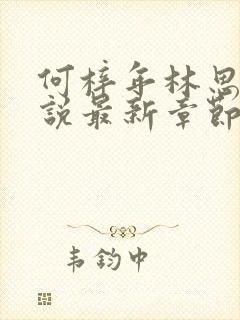 何梓年林思
說最新章節
韦鈞中